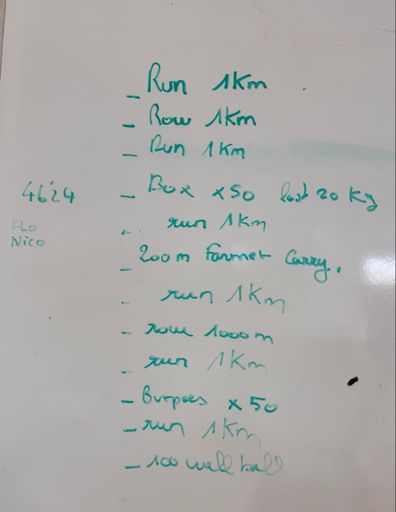 - Run 1Km
- Row 1Km
- Run 1Km
46'24
- Box x50 20 Kg
Flo
Nico
- run 1Km
- 200m Farmer Carry.
- run 1Km
- row 1000m
- run 1Km
- Burpees x50
- run 1Km
- 100 wall ball